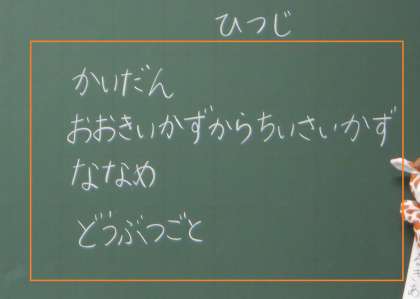 ひつじ
かいだん
おおきいかずからちいさいかず
ななめ
どうぶつごと